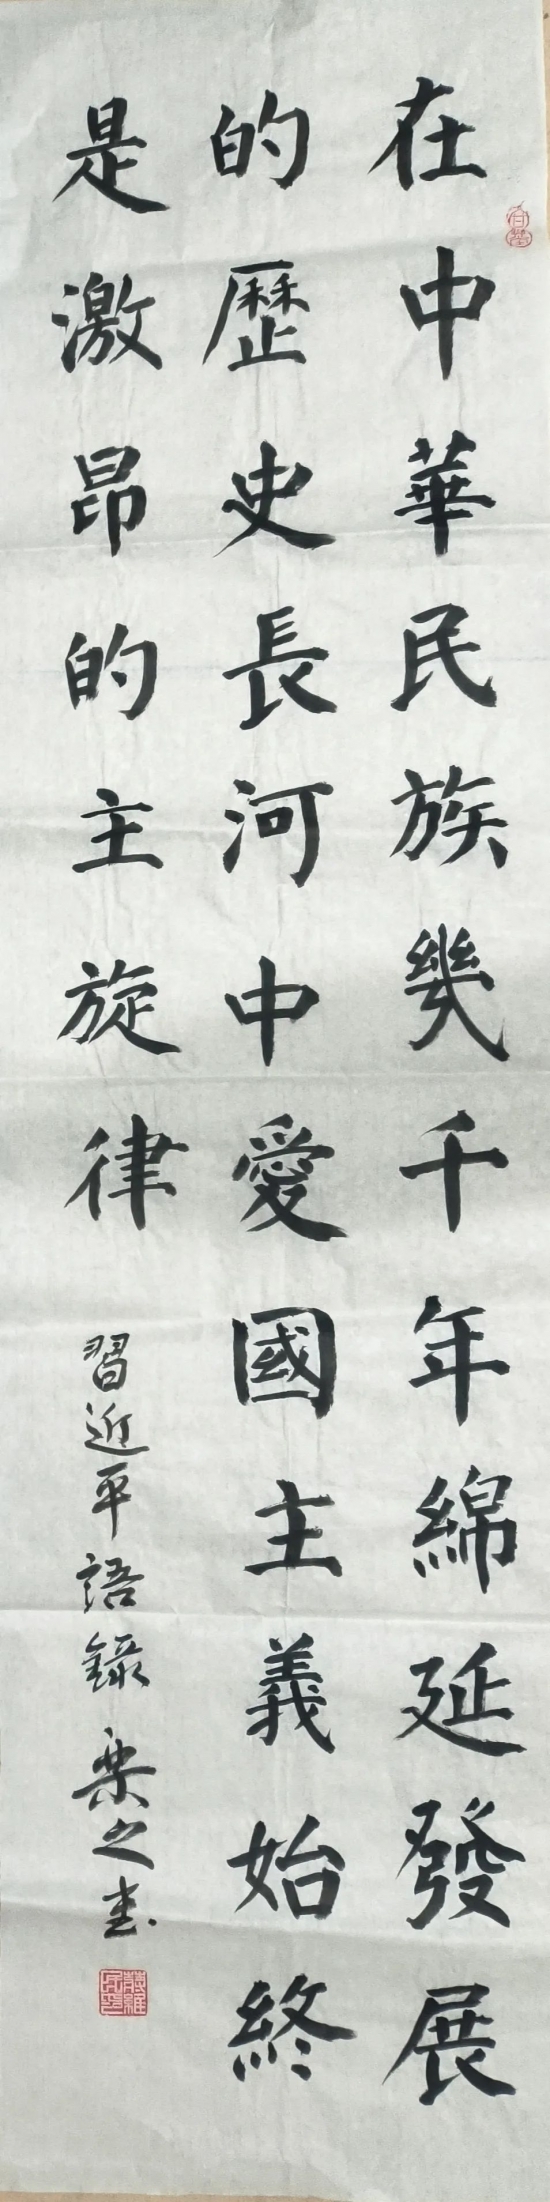 在中華民族幾千年綿延發展
的歷史長河中愛國主義始終
是激昂的主旋律
習近平語錄 樂之書